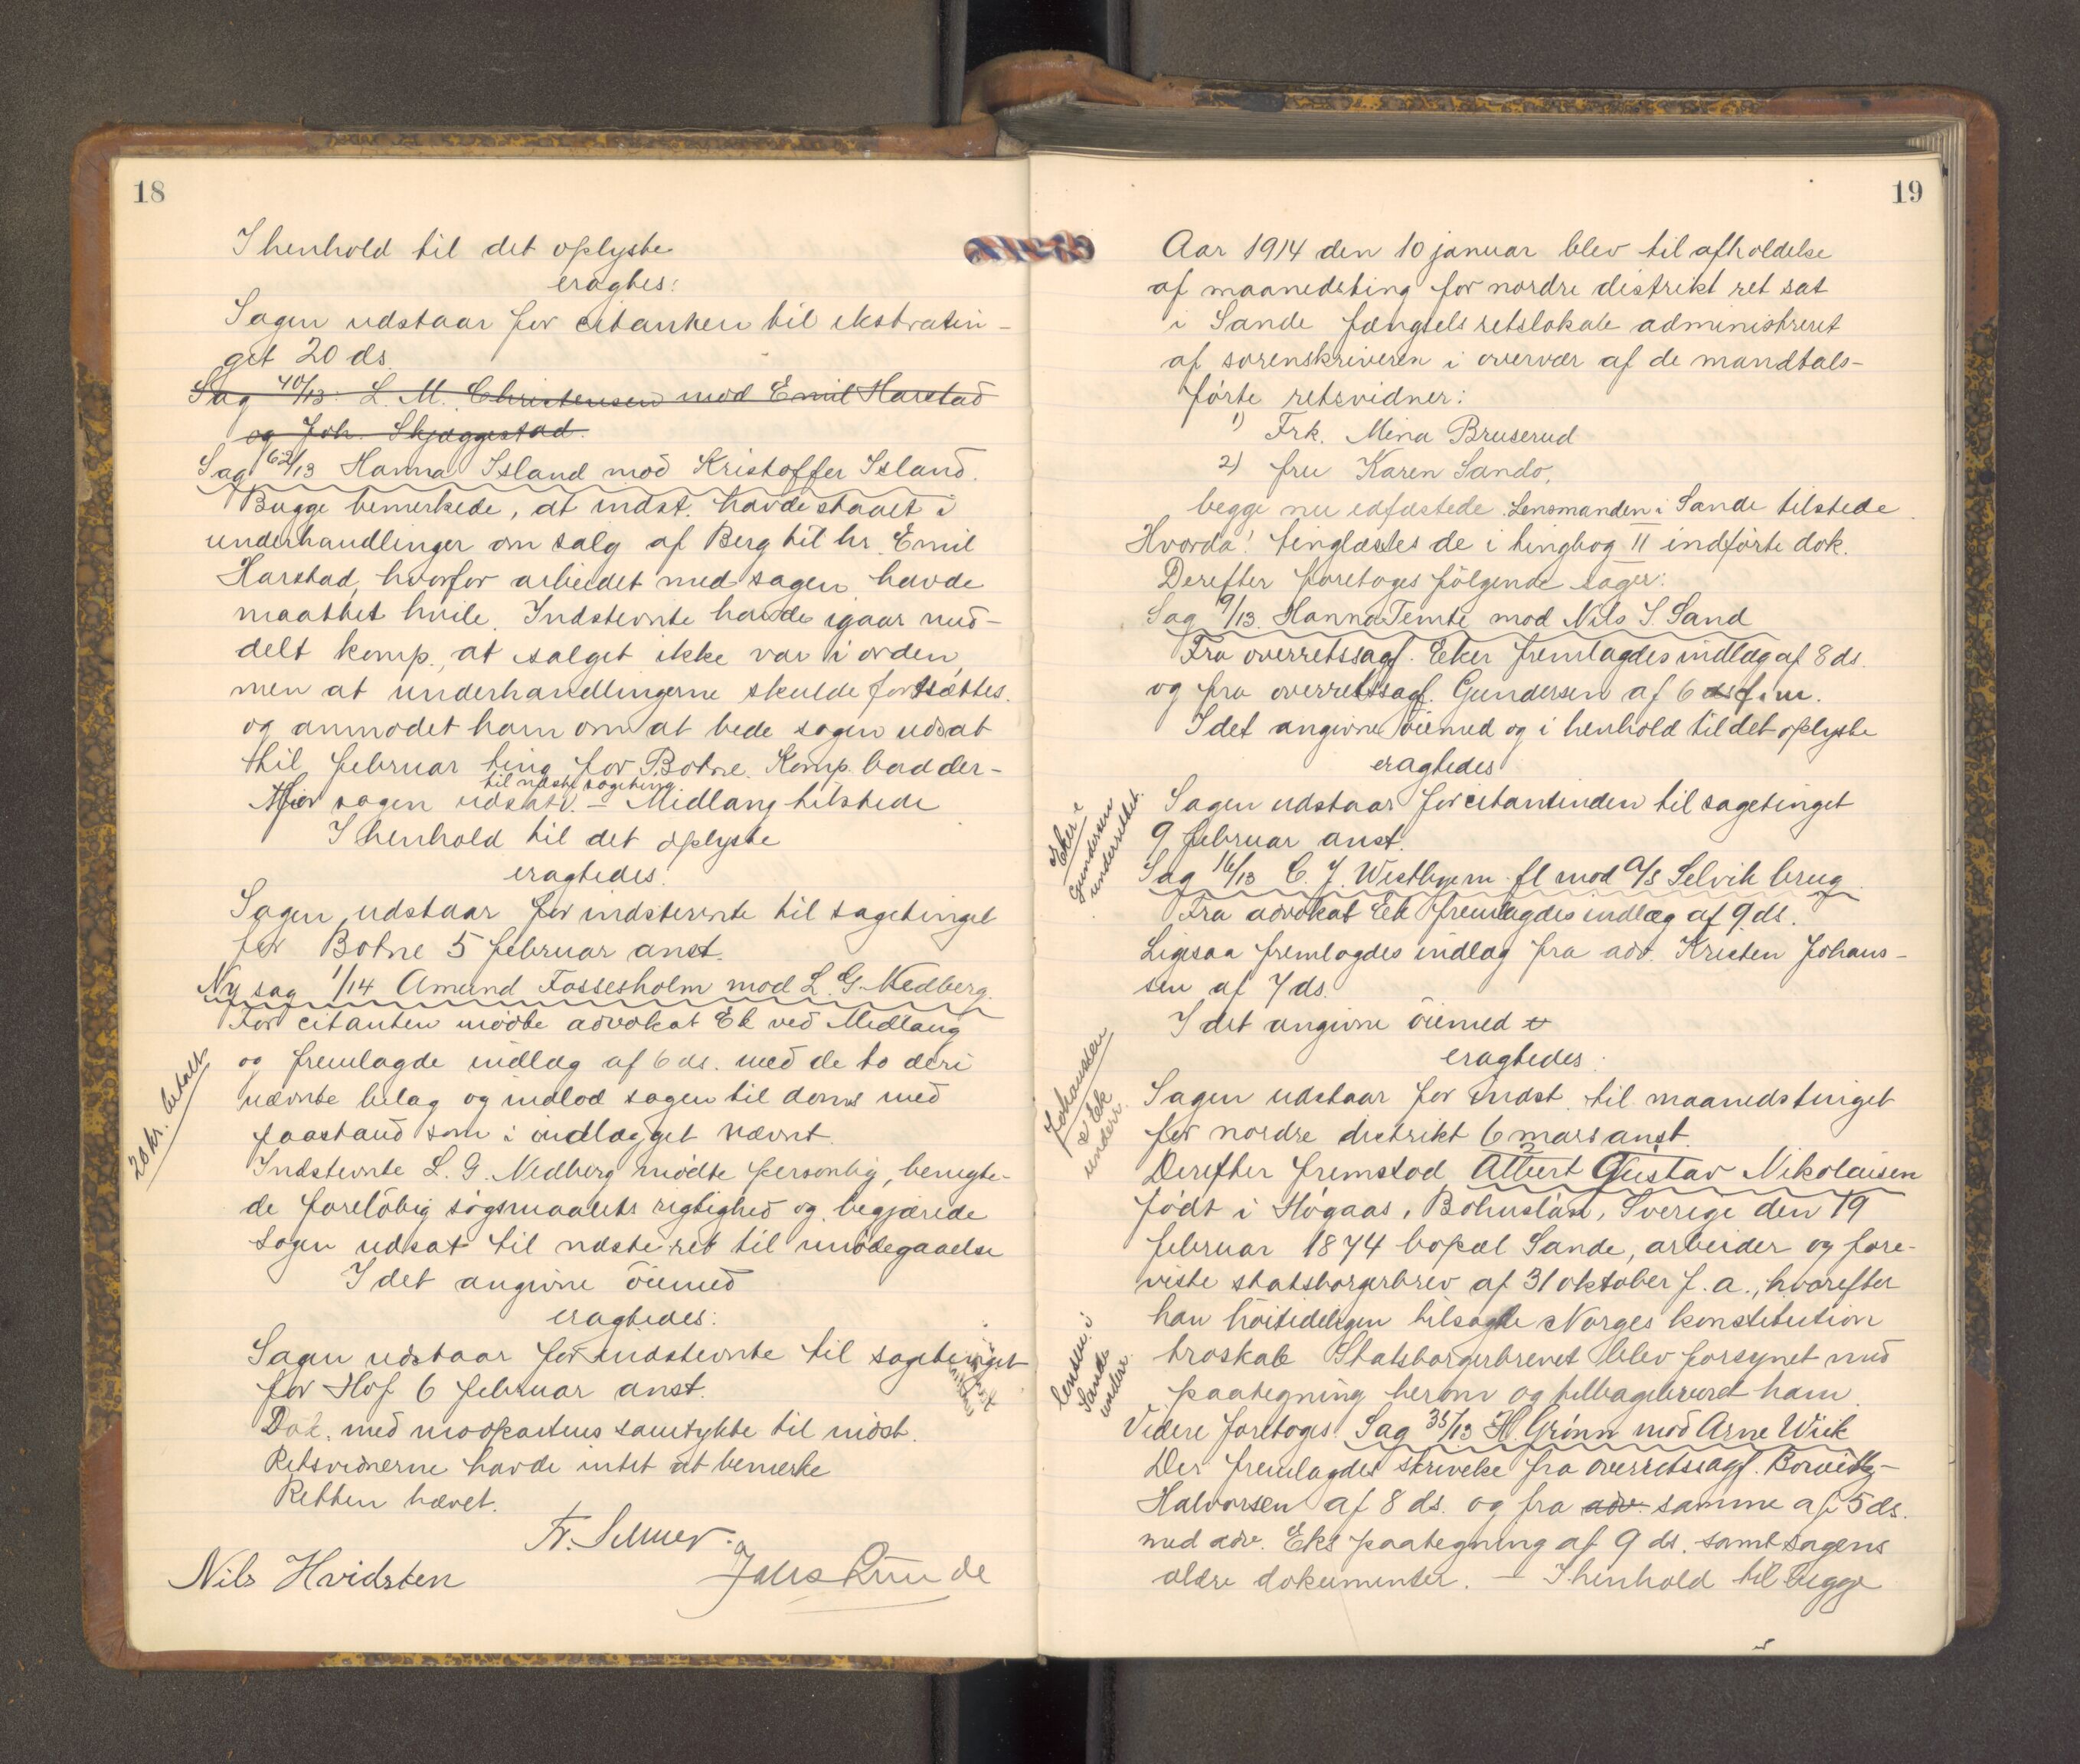 18
I henhold til det oplyste
eragtes:
Sagen udstaar for citanten til ekstratin-
get 20 ds.
Sag 40/13. L. M. Christensen mod Emil Harstad
og Joh. Skjæggestad.
Sag 62/13 Hanna Island mod Kristoffer Island.
Bugge bemerkede, at indst. havde staaet i
underhandlinger om salg af Berg til hr. Emil
Harstad, hvorfor arbeidet med sagen havde
maattet hvile. Indstevnte havde igaar med-
delt komp., at salget ikke var i orden,
men at underhandlingerne skulde fortsættes.
og anmodet ham om at bede sagen udsat
til februar ting for Botne. Komp. bad der-
til næste sageting
for sagen udsat. – Midlang tilstede
I henhold til det oplyste
eragtedes:
Sagen udstaar for indstevnte til sagetinget
for Botne 5 februar anst.
Ny sag 1/14 Amund Fossesholm mod L. G. Nedberg.
For citanten mødte advokat Ek ved Midlang
og fremlagde indlæg af 6 ds. med de to deri
nævnte bilag og indlod sagen til doms med
paastand som i indlægget nævnt.
20 kr. betalt
Indstevnte L. G. Nedberg mødte personlig, benegte-
de foreløbig søgsmaalets rigtighed og begjærede
sagen udsat til næste ret til imødegaaelse
I det angivne øiemed
eragtedes:
Sagen udstaar for indstevnte til sagetinget
for Hof 6 februar anst.
Dok. med modpartens samtykke til indst.
Retsvidnerne havde intet at bemerke
Retten hævet.
Fr. Selmer.
Nils Hvidsten
19
Aar 1914 den 10 januar blev til afholdelse
af maanedsting for nordre distrikt ret sat
i Sande fængsels retslokale administreret
af sorenskriveren i overvær af de mandtals-
førte retsvidner:
1) Frk. Mina Bruserud
2) fru Karen Sando,
begge nu edfæstede. Lensmanden i Sande tilstede.
Hvorda! tinglæstes de i tingbog II indførte dok.
Derefter foretoges følgende sager:
Sag 9/13 Hanna Temte mod Nils S. Sand
Fra overretssagf. Eker fremlagdes indlæg af 8 ds.
og fra overretssagf. Gundersen af 6 ds f. m.
I det angivne øiemed og i henhold til det oplyste
eragtedes
Sagen udstaar for citantinden til sagetinget
9 februar anst.
Eker &
Gundersen
underrettet.
Sag 16/13 C. J. Westbye m. fl mod A/S Selvik brug
Fra advokat Ek fremlagdes indlæg af 9 ds.
Ligesaa fremlagdes indlæg fra adv. Kristen Johans-
sen af 7 ds.
I det angivne øiemed
eragtedes:
Sagen udstaar for indst. til maanedstinget
for nordre distrikt 6 mars anst.
Johanssen
& Ek
underr.
Derefter fremstod Albert Gustav Nikolaisen
født i Högaas, Bohuslän, Sverige den 19
februar 1874 bopæl Sande, arbeider og fore-
viste statsborgerbrev af 31 oktober f. a., hvorefter
han høitideligen tilsagde Norges konstitution
troskab Statsborgerbrevet blev forsynet med
paategning herom og tilbageleveret ham
lensm. i
Sande
underr.
Videre foretoges: Sag 35/13 H. Grønn mod Arne Wiik
Der fremlagdes skrivelse fra overretssagf. Borwitz-
Halvorsen af 8 ds. og fra adv. samme af 5 ds.
med adv. Eks paategning af 9 ds. samt sagens
ældre dokumenter. – I henhold til begge